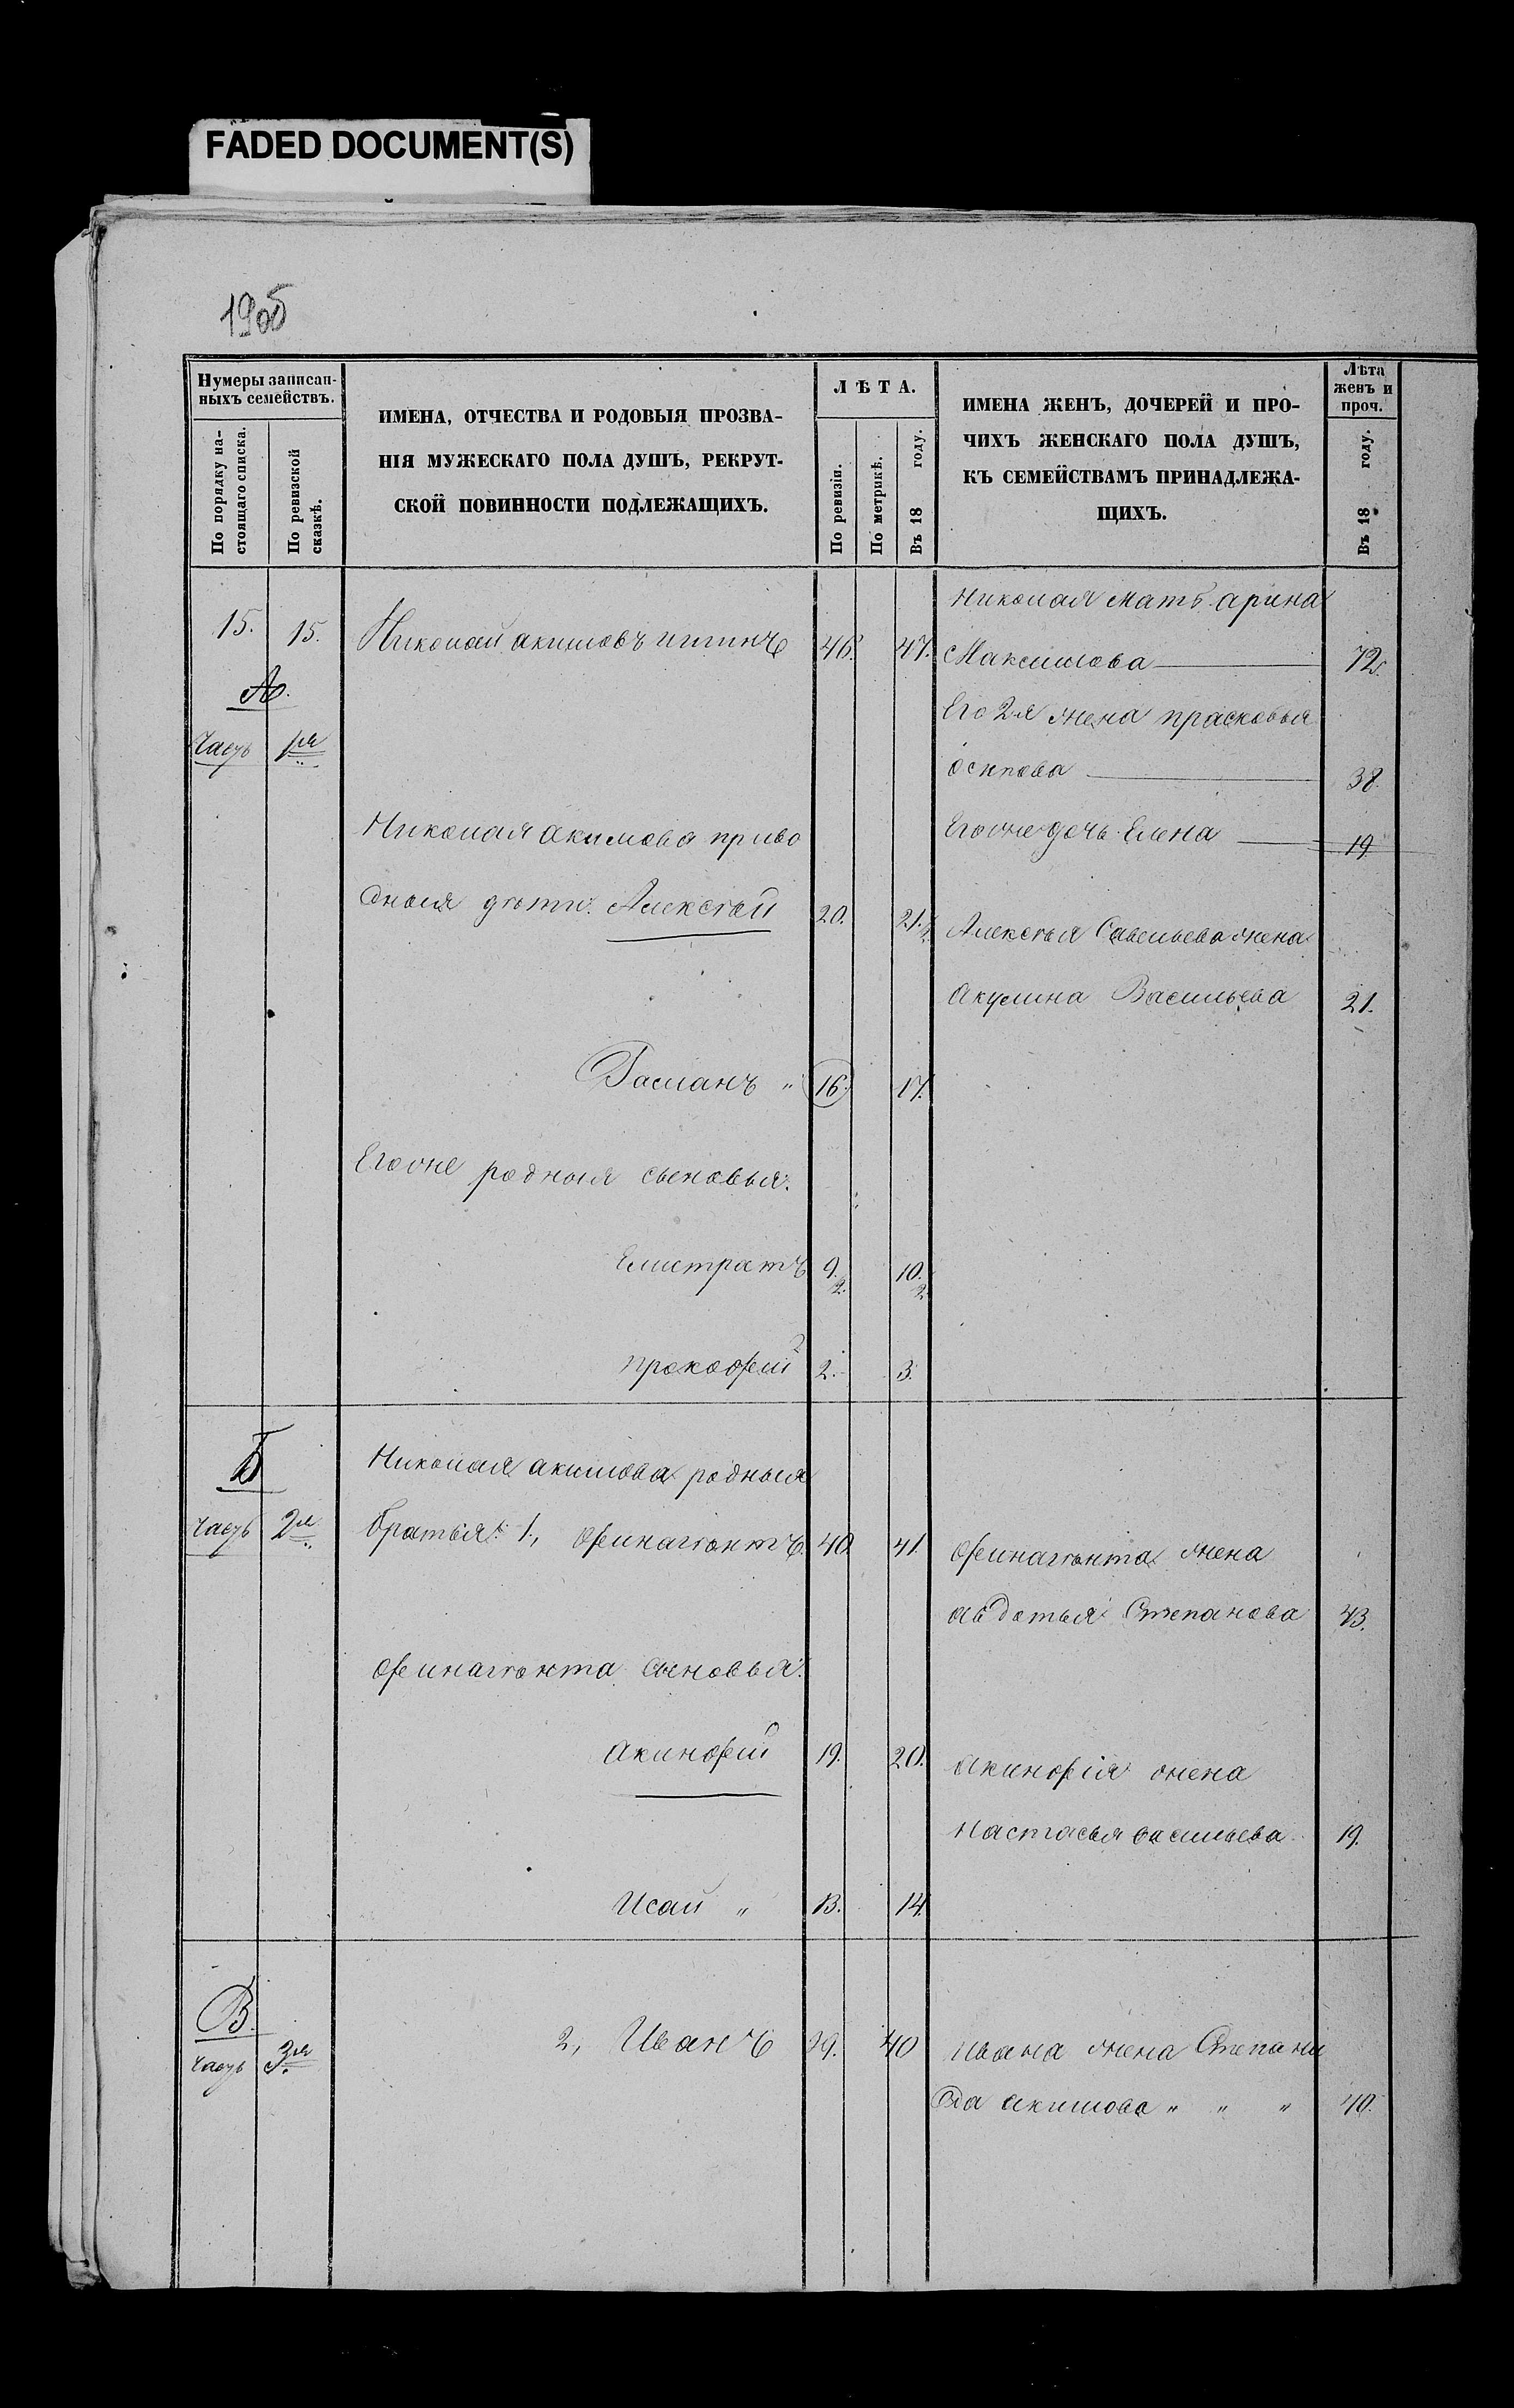 FADED DOCUMENT(S)
1905
Нумеры записан-
ныхъ семействъ.
По порядку на-
стоящаго списка.
По ревизской
сказкѣ.
ИМЕНА, ОТЧЕСТВА И РОДОВЫЯ ПРОЗВА-
НІЯ МУЖЕСКАГО ПОЛА ДУШЪ, РЕКРУТ-
СКОЙ ПОВИННОСТИ ПОДЛЕЖАЩИХЪ.
ЛѢТА.
По ревизіи.
По метрикѣ.
Въ 18 году.
ИМЕНА ЖЕНЪ, ДОЧЕРЕЙ И ПРО-
ЧИХЪ ЖЕНСКАГО ПОЛА ДУШЪ,
КЪ СЕМЕЙСТВАМЪ ПРИНАДЛЕЖА-
ЩИХЪ.
Лѣта
женъ и
проч.
Въ 18 году.
Николая мать арина
15. 15. Николай акимовъ 46. 47. Максимова 72.
А.
Его 2я жена прасковья
Часть 1ря
осипова 38.
Николая акимова приво Егоже дочь Елена 19
дныя дѣти. Алексѣй 20. 21. Алексѣя Савельева жена
2.
акулина Васильева 21.
16. 17.
Егоже родныя сыновья:
Елистратъ 9. 10.
2. 2.
прокофей 2. 3.
2
Б Николая акимова родныя
часть 2я братья: 1, финагѣнтъ 40. 41. финагѣнта жена
авдотья Степанова 43.
финагѣнта сыновья:
акинфей 19. 20. акинфія жена
настасья васильева 19.
Исай „ 13. 14.
В.
часть 3я 2, Иванъ 39. 40 ивана жена Степани
да акимова „ „ „ 40.